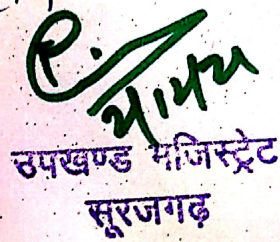 उपखण्ड मजिस्ट्रेट
सूरजगढ़